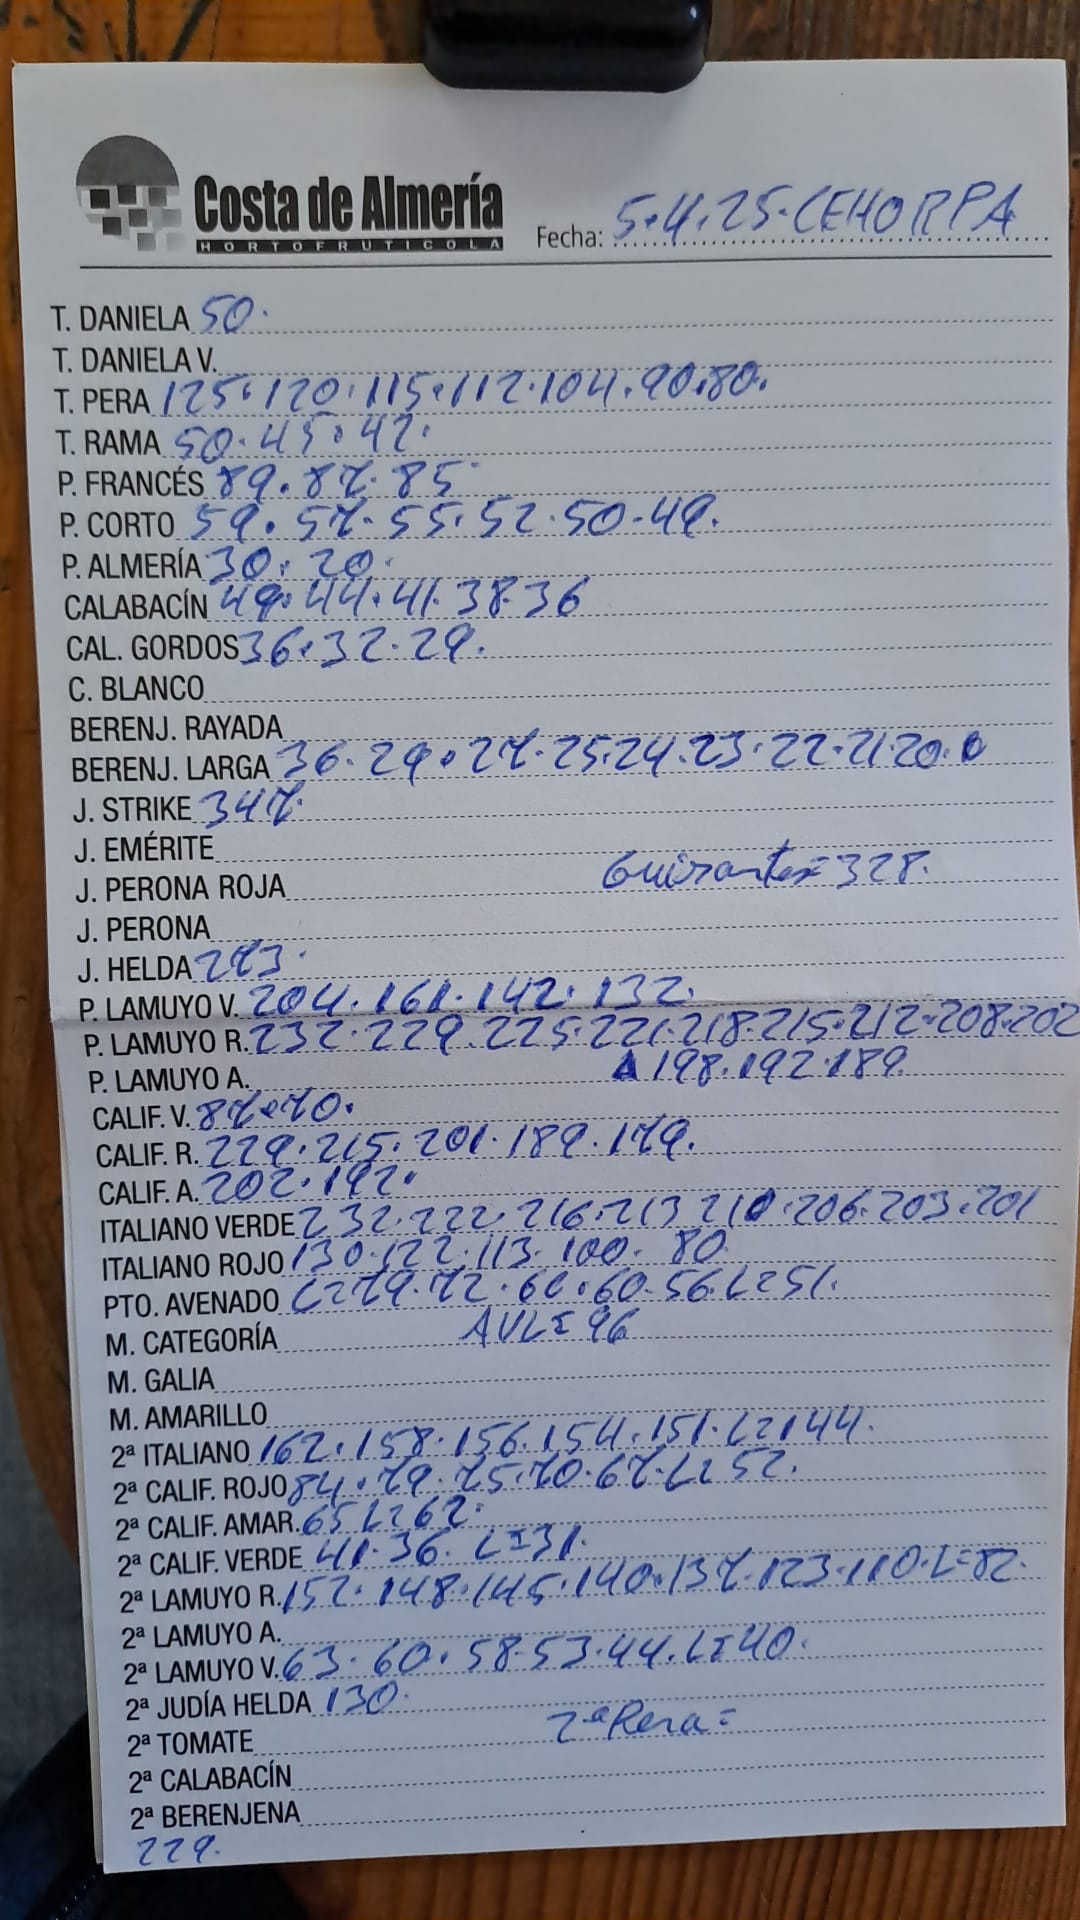 Costa de Almería
HORTOFRUTICOLA
Fecha: 5.4.25.CEHORPA
T. DANIELA 50.
T. DANIELA V.
T. PERA 125.120.115.112.104.90.80.
T. RAMA 50.45.42.
P. FRANCÉS 89.87.85
P. CORTO 59.57.55.52.50.49.
P. ALMERÍA 30.20.
CALABACÍN 49.44.41.38.36
CAL. GORDOS 36.32.29.
C. BLANCO
BERENJ. RAYADA
BERENJ. LARGA 36.29.27.25.24.23.22.21.20.
J. STRIKE 347.
J. EMÉRITE
Guisantes=328.
J. PERONA ROJA
J. PERONA
J. HELDA 273.
P. LAMUYO V. 204.161.142.132.
P. LAMUYO R. 232.229.225.221.218.215.212.208.202
P. LAMUYO A. 198.192.189.
CALIF. V. 87.70.
CALIF. R. 229.215.201.189.179.
CALIF. A. 202.192.
ITALIANO VERDE 232.222.216.213.210.206.203.201
ITALIANO ROJO 130.122.113.100.80.
PTO. AVENADO L=79.72.60.56.L=51.
M. CATEGORÍA AVL=96
M. GALIA
M. AMARILLO
2ª ITALIANO 162.158.156.154.151.L=144.
2ª CALIF. ROJO 84.79.75.70.67.L=52.
2ª CALIF. AMAR. 65 L=62.
2ª CALIF. VERDE 41.36. L=31.
2ª LAMUYO R. 152.148.145.140.137.123.110.L=82.
2ª LAMUYO A.
2ª LAMUYO V. 63.60.58.53.44.L=40.
2ª JUDÍA HELDA 130.
2ª Pera=
2ª TOMATE
2ª CALABACÍN
2ª BERENJENA
229.